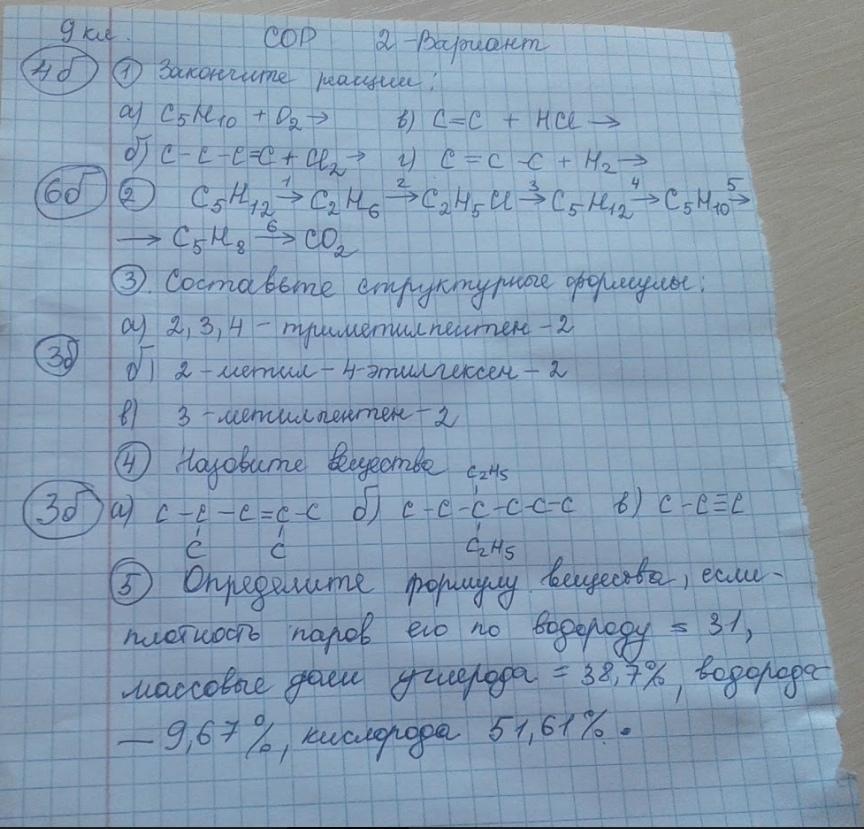 9 кл. СОР 2-Вариант
4б ① Закончите реакции:
а) C5H10 + O2 → в) C=C + HCl →
б) C-C-C=C + Cl2 → г) C=C-C + H2 →
6б ② C5H12 1→ C2H6 2→ C2H5Cl 3→ C5H12 4→ C5H10 5→
→ C5H8 6→ CO2
③. Составьте структурные формулы:
а) 2,3,4-триметилпентен-2
3б
б) 2-метил-4-этилгексен-2
в) 3-метилпентен-2
④ Назовите вещества
C2H5
3б а) C-C-C=C-C б) C-C-C-C-C-C в) C-C≡C
C C C2H5
⑤ Определите формулу вещества, если-
плотность паров его по водороду = 31,
массовые доли углерода = 38,7%, водорода
— 9,67%, кислорода 51,61%.